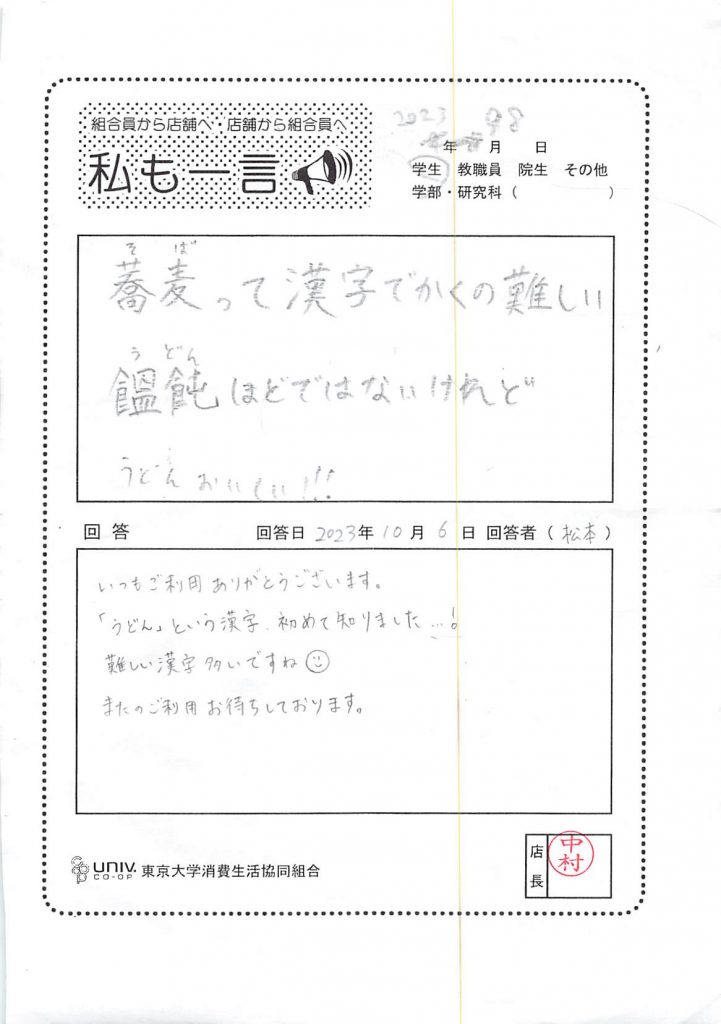 組合員から店舗へ・店舗から組合員へ
私も一言
2023 9 8
年 月 日
学生 教職員 院生 その他
学部・研究科（ ）
そ ば
蕎麦って漢字でかくの難しい
う どん
饂飩ほどではないけれど
うどんおいしい!!!
回答 回答日 2023年 10月 6日 回答者（松本）
いつもご利用ありがとうございます。
「うどん」という漢字、初めて知りました…!
難しい漢字多いですね
またのご利用お待ちしております。
UNIV. CO-OP 東京大学消費生活協同組合
店長
中村